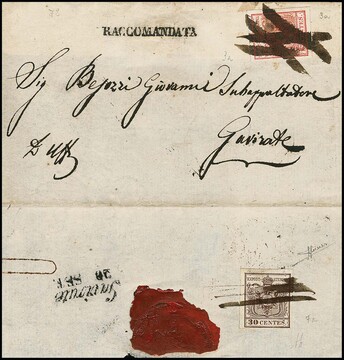 RACCOMANDATA
Sig Bejozzi Giovanni Subappaltatore
Gavirate
Gavirate
20 SET
30 CENTES.